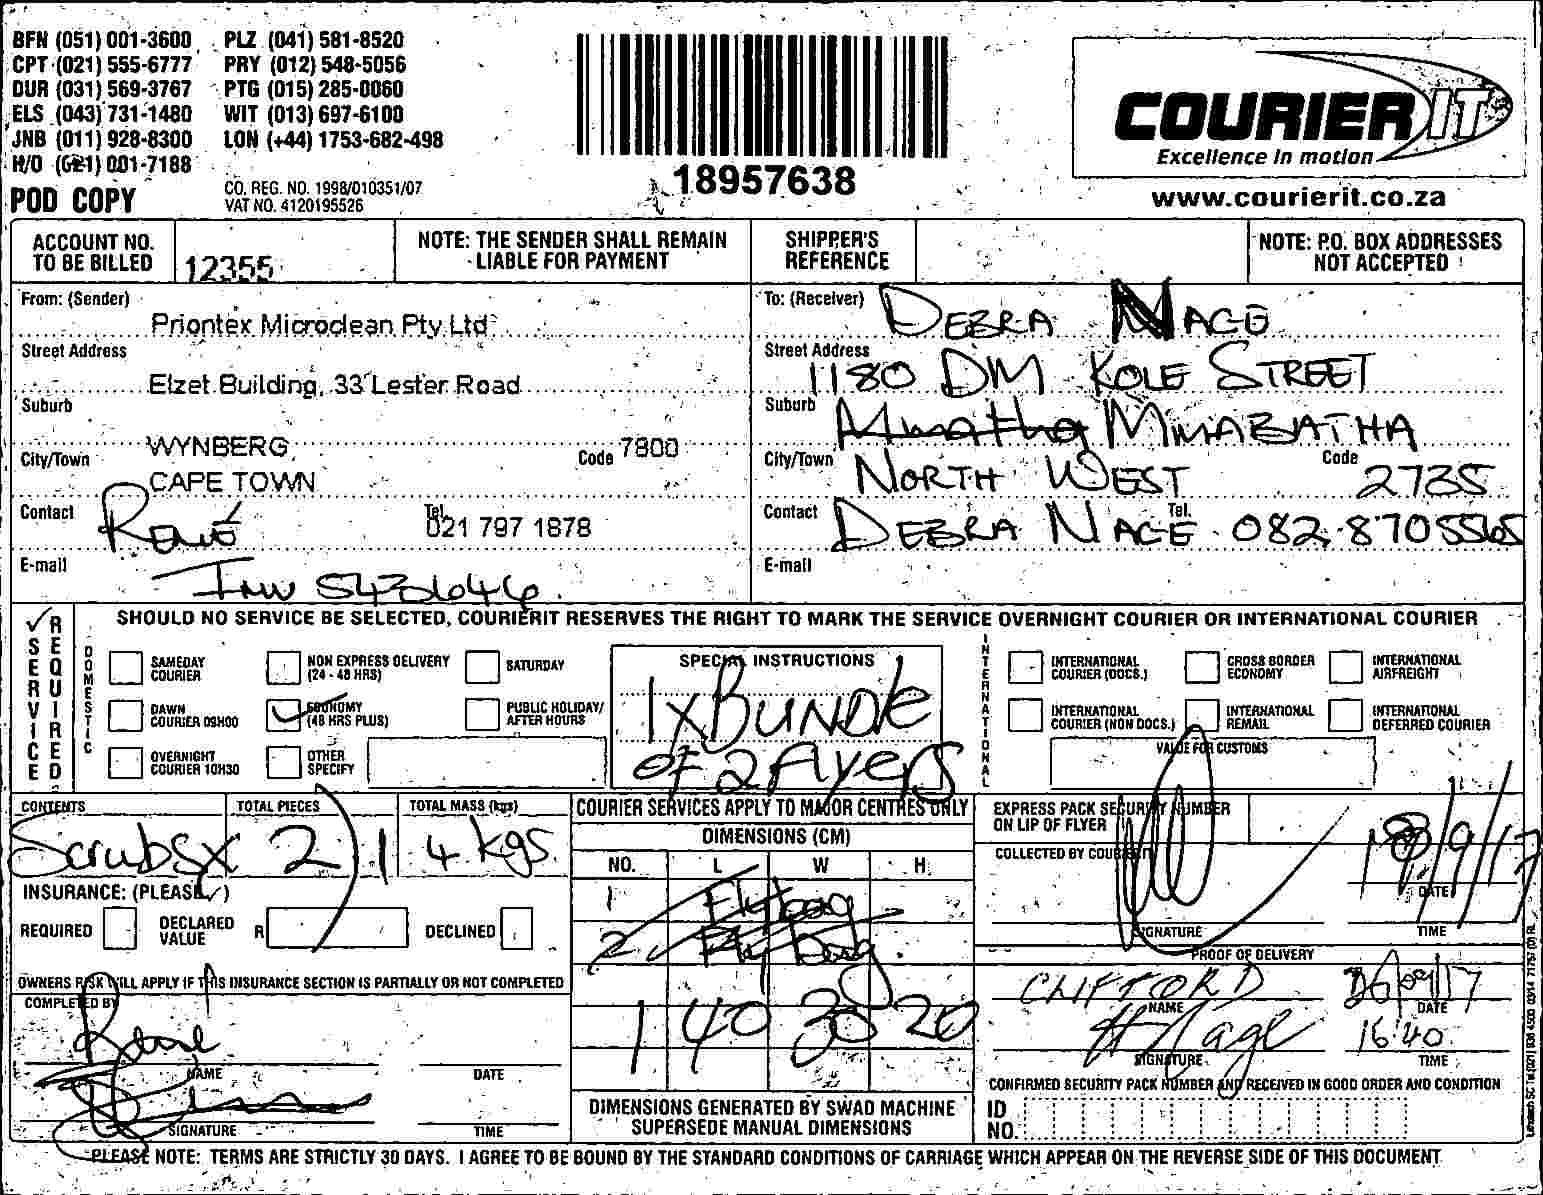 BFN (051) 001-3600 PLZ (041) 581-8520
CPT (021) 555-6777 PRY (012) 548-5056
DUR (031) 569-3767 PTG (015) 285-0060
ELS (043) 731-1480 WIT (013) 697-6100
JNB (011) 928-8300 LON (+44) 1753-682-498
H/O (021) 001-7188
POD COPY
CO. REG. NO. 1998/010351/07
VAT NO. 4120195526
18957638
COURIER IT
Excellence in motion
www.courierit.co.za
ACCOUNT NO. TO BE BILLED 12355
NOTE: THE SENDER SHALL REMAIN LIABLE FOR PAYMENT
SHIPPER'S REFERENCE
NOTE: P.O. BOX ADDRESSES NOT ACCEPTED
From: (Sender)
Priontex Microclean Pty Ltd
Street Address
Elzet Building, 33 Lester Road
Suburb
WYNBERG
City/Town Code 7800
CAPE TOWN
Contact René Tel. 021 797 1878
E-mail Inv
To: (Receiver) DEBRA NAGE
Street Address 1180 DM KOLE STREET
Suburb MMABATHA
City/Town NORTH WEST Code 2735
Contact DEBRA NAGE Tel. 082 8705565
E-mail
SERVICE REQUIRED
SHOULD NO SERVICE BE SELECTED, COURIERIT RESERVES THE RIGHT TO MARK THE SERVICE OVERNIGHT COURIER OR INTERNATIONAL COURIER
DOMESTIC
SAMEDAY COURIER
NON EXPRESS DELIVERY (24 - 48 HRS)
SATURDAY
DAWN COURIER 09H00
ECONOMY (48 HRS PLUS)
PUBLIC HOLIDAY/ AFTER HOURS
OVERNIGHT COURIER 10H30
OTHER SPECIFY
SPECIAL INSTRUCTIONS
1 x Bundle
of 2 Flyers
INTERNATIONAL
INTERNATIONAL COURIER (DOCS.)
CROSS BORDER ECONOMY
INTERNATIONAL AIRFREIGHT
INTERNATIONAL COURIER (NON DOCS.)
INTERNATIONAL REMAIL
INTERNATIONAL DEFERRED COURIER
VALUE FOR CUSTOMS
CONTENTS TOTAL PIECES TOTAL MASS (kgs)
Scrubs x 2 ) 1 4 kgs
INSURANCE: (PLEASE ✓)
REQUIRED DECLARED VALUE R DECLINED
OWNERS RISK WILL APPLY IF THIS INSURANCE SECTION IS PARTIALLY OR NOT COMPLETED
COMPLETED BY
Rene
NAME DATE
SIGNATURE TIME
COURIER SERVICES APPLY TO MAJOR CENTRES ONLY
DIMENSIONS (CM)
NO. L W H
1 Flybag
2 Flybag
1 40 30 20
DIMENSIONS GENERATED BY SWAD MACHINE SUPERSEDE MANUAL DIMENSIONS
EXPRESS PACK SECURITY NUMBER ON LIP OF FLYER
COLLECTED BY COURIERIT
18/9/17
DATE
SIGNATURE TIME
PROOF OF DELIVERY
CLIFFORD 26/09/17
NAME DATE
16:40
SIGNATURE TIME
CONFIRMED SECURITY PACK NUMBER AND RECEIVED IN GOOD ORDER AND CONDITION
ID NO.
PLEASE NOTE: TERMS ARE STRICTLY 30 DAYS. I AGREE TO BE BOUND BY THE STANDARD CONDITIONS OF CARRIAGE WHICH APPEAR ON THE REVERSE SIDE OF THIS DOCUMENT